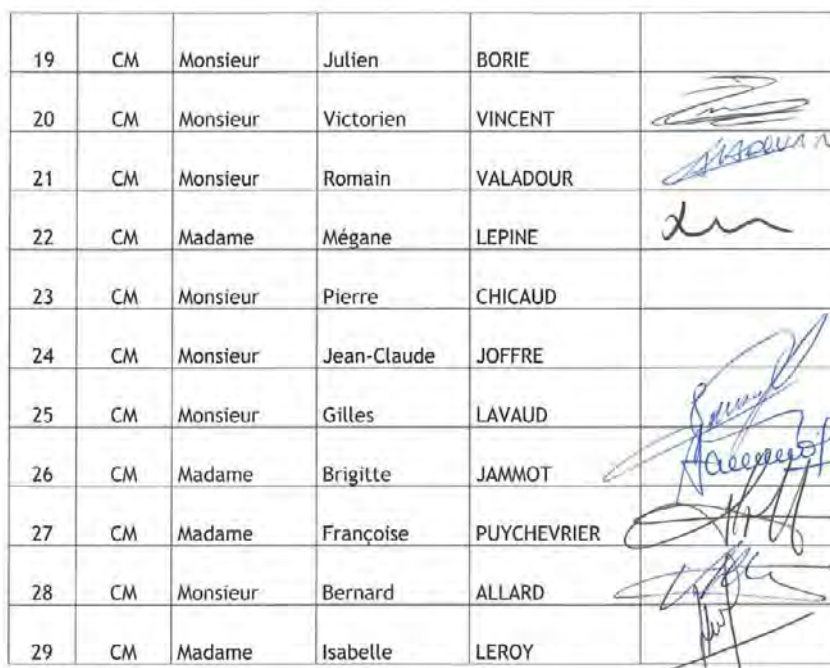 19 CM Monsieur Julien BORIE
20 CM Monsieur Victorien VINCENT
21 CM Monsieur Romain VALADOUR
22 CM Madame Mégane LEPINE
23 CM Monsieur Pierre CHICAUD
24 CM Monsieur Jean-Claude JOFFRE
25 CM Monsieur Gilles LAVAUD
26 CM Madame Brigitte JAMMOT
27 CM Madame Françoise PUYCHEVRIER
28 CM Monsieur Bernard ALLARD
29 CM Madame Isabelle LEROY